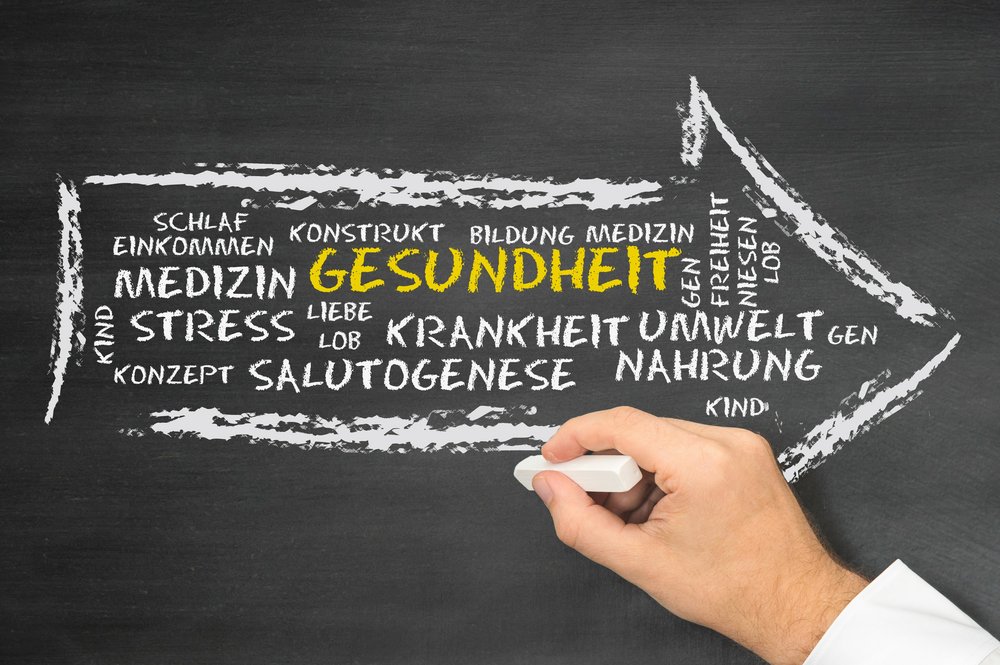 SCHLAF
EINKOMMEN
KONSTRUKT
BILDUNG MEDIZIN
MEDIZIN
GESUNDHEIT
GEN
FREIHEIT
NIESEN
LOB
KIND
STRESS
LIEBE
LOB
KRANKHEIT
UMWELT
GEN
KONZEPT
SALUTOGENESE
NAHRUNG
KIND